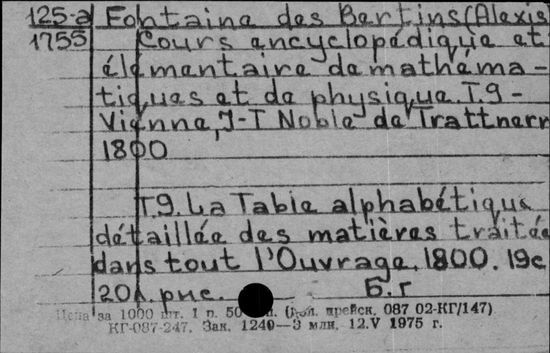 125-а Fontaina des Bertins(Alexis
1755 Cours encyclopédique et
élémentaire de mathéma-
tiques et de physique. T.9-
Vienne, J-T Noble de Trattnern
1800
T.9. La Table alphabétique
détaillée des matières traitée
dans tout l'Ouvrage. 1800. 19с
20л. рис. Б.г
Цена за 1000 шт. 1 р. 50 (Доп. прейск. 087 02-КГ/147)
КГ-087-247. Зак. 1240—3 млн. 12.V 1975 г.